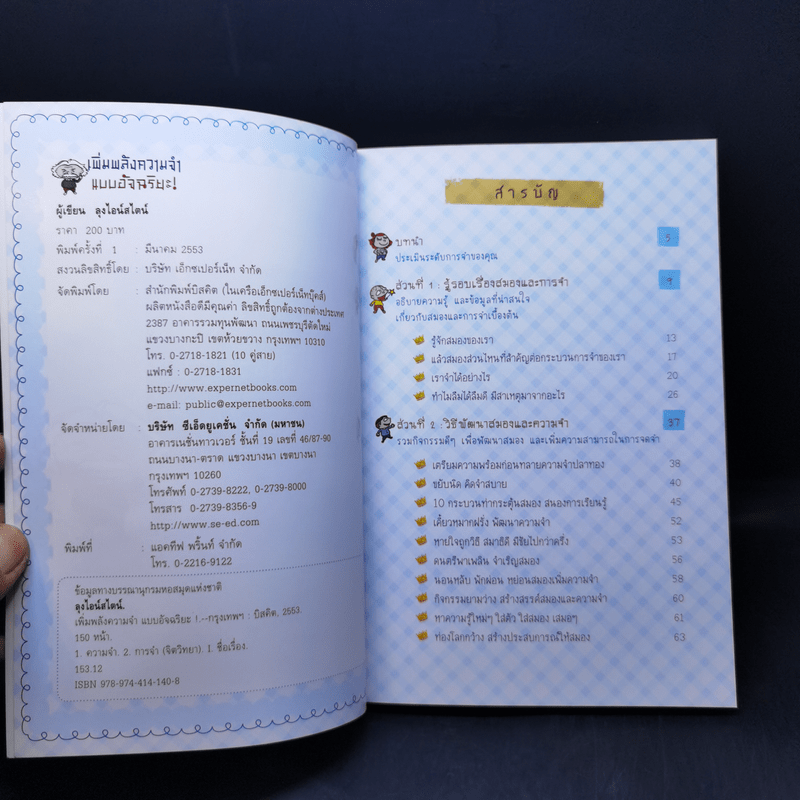 เพิ่มพลังความจำ
แบบอัจฉริยะ!
ผู้เขียน ลุงไอน์สไตน์
ราคา 200 บาท
พิมพ์ครั้งที่ 1 : มีนาคม 2553
สงวนลิขสิทธิ์โดย : บริษัท เอ็กซเปอร์เน็ท จำกัด
จัดพิมพ์โดย : สำนักพิมพ์บิสคิต (ในเครือเอ็กซเปอร์เน็ทบุ๊คส์)
ผลิตหนังสือดีมีคุณค่า ลิขสิทธิ์ถูกต้องจากต่างประเทศ
2387 อาคารรวมทุนพัฒนา ถนนเพชรบุรีตัดใหม่
แขวงบางกะปิ เขตห้วยขวาง กรุงเทพฯ 10310
โทร. 0-2718-1821 (10 คู่สาย)
แฟกซ์ : 0-2718-1831
http://www.expernetbooks.com
e-mail: public@expernetbooks.com
จัดจำหน่ายโดย : บริษัท ซีเอ็ดยูเคชั่น จำกัด (มหาชน)
อาคารเนชั่นทาวเวอร์ ชั้นที่ 19 เลขที่ 46/87-90
ถนนบางนา-ตราด แขวงบางนา เขตบางนา
กรุงเทพฯ 10260
โทรศัพท์ 0-2739-8222, 0-2739-8000
โทรสาร 0-2739-8356-9
http://www.se-ed.com
พิมพ์ที่ : แอคทีฟ พริ้นท์ จำกัด
โทร. 0-2216-9122
ข้อมูลทางบรรณานุกรมหอสมุดแห่งชาติ
ลุงไอน์สไตน์.
เพิ่มพลังความจำ แบบอัจฉริยะ !.--กรุงเทพฯ : บิสคิต, 2553.
150 หน้า.
1. ความจำ. 2. การจำ (จิตวิทยา). I. ชื่อเรื่อง.
153.12
ISBN 978-974-414-140-8
สารบัญ
บทนำ 5
ประเมินระดับการจำของคุณ
ส่วนที่ 1 : รู้รอบเรื่องสมองและการจำ 9
อธิบายความรู้ และข้อมูลที่น่าสนใจ
เกี่ยวกับสมองและการจำเบื้องต้น
รู้จักสมองของเรา 13
แล้วสมองส่วนไหนที่สำคัญต่อกระบวนการจำของเรา 17
เราจำได้อย่างไร 20
ทำไมลืมได้ลืมดี มีสาเหตุมาจากอะไร 26
ส่วนที่ 2 : วิธีพัฒนาสมองและความจำ 37
รวมกิจกรรมดีๆ เพื่อพัฒนาสมอง และเพิ่มความสามารถในการจดจำ
เตรียมความพร้อมก่อนทลายความจำปลาทอง 38
ขยับนิด คิดจำสบาย 40
10 กระบวนท่ากระตุ้นสมอง สนองการเรียนรู้ 45
เคี้ยวหมากฝรั่ง พัฒนาความจำ 52
หายใจถูกวิธี สมาธิดี มีชัยไปกว่าครึ่ง 53
ดนตรีพาเพลิน จำเริญสมอง 56
นอนหลับ พักผ่อน หย่อนสมองเพิ่มความจำ 58
กิจกรรมยามว่าง สร้างสรรค์สมองและความจำ 60
หาความรู้ใหม่ๆ ใส่ตัว ใส่สมอง เสมอๆ 61
ท่องโลกกว้าง สร้างประสบการณ์ให้สมอง 63